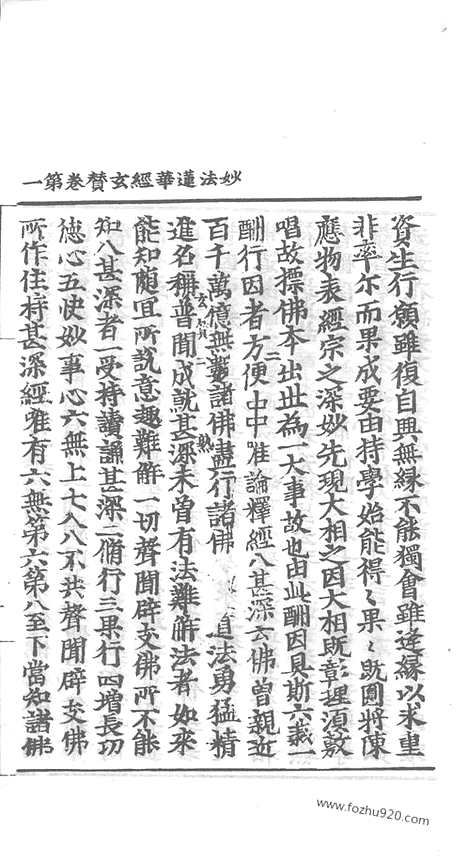 妙法蓮華經玄贊卷第一
資生行願雖復自興無緣不能獨會雖逢緣以求重
非率尒而果成要由持學始能得〻果〻既圓將陳
應物表經宗之深妙先現大相之因大相既彰理須敷
唱故摽佛本出世為一大事故也由此酬因具斯六義一
酬行因者方便品中准論釋經八甚深云佛曾親近
百千萬億無數諸佛盡行諸佛道法勇猛精
進名稱普聞成就甚深未曾有法難解法者如來
能知隨宜所說意趣難解一切聲聞辟支佛所不能
知八甚深者一受持讀誦甚深二脩行三果行四增長功
德心五快妙事心六無上七入八不共聲聞辟支佛
所作住持甚深經唯有六無第六第八至下當知諸佛
www.fozhu920.com